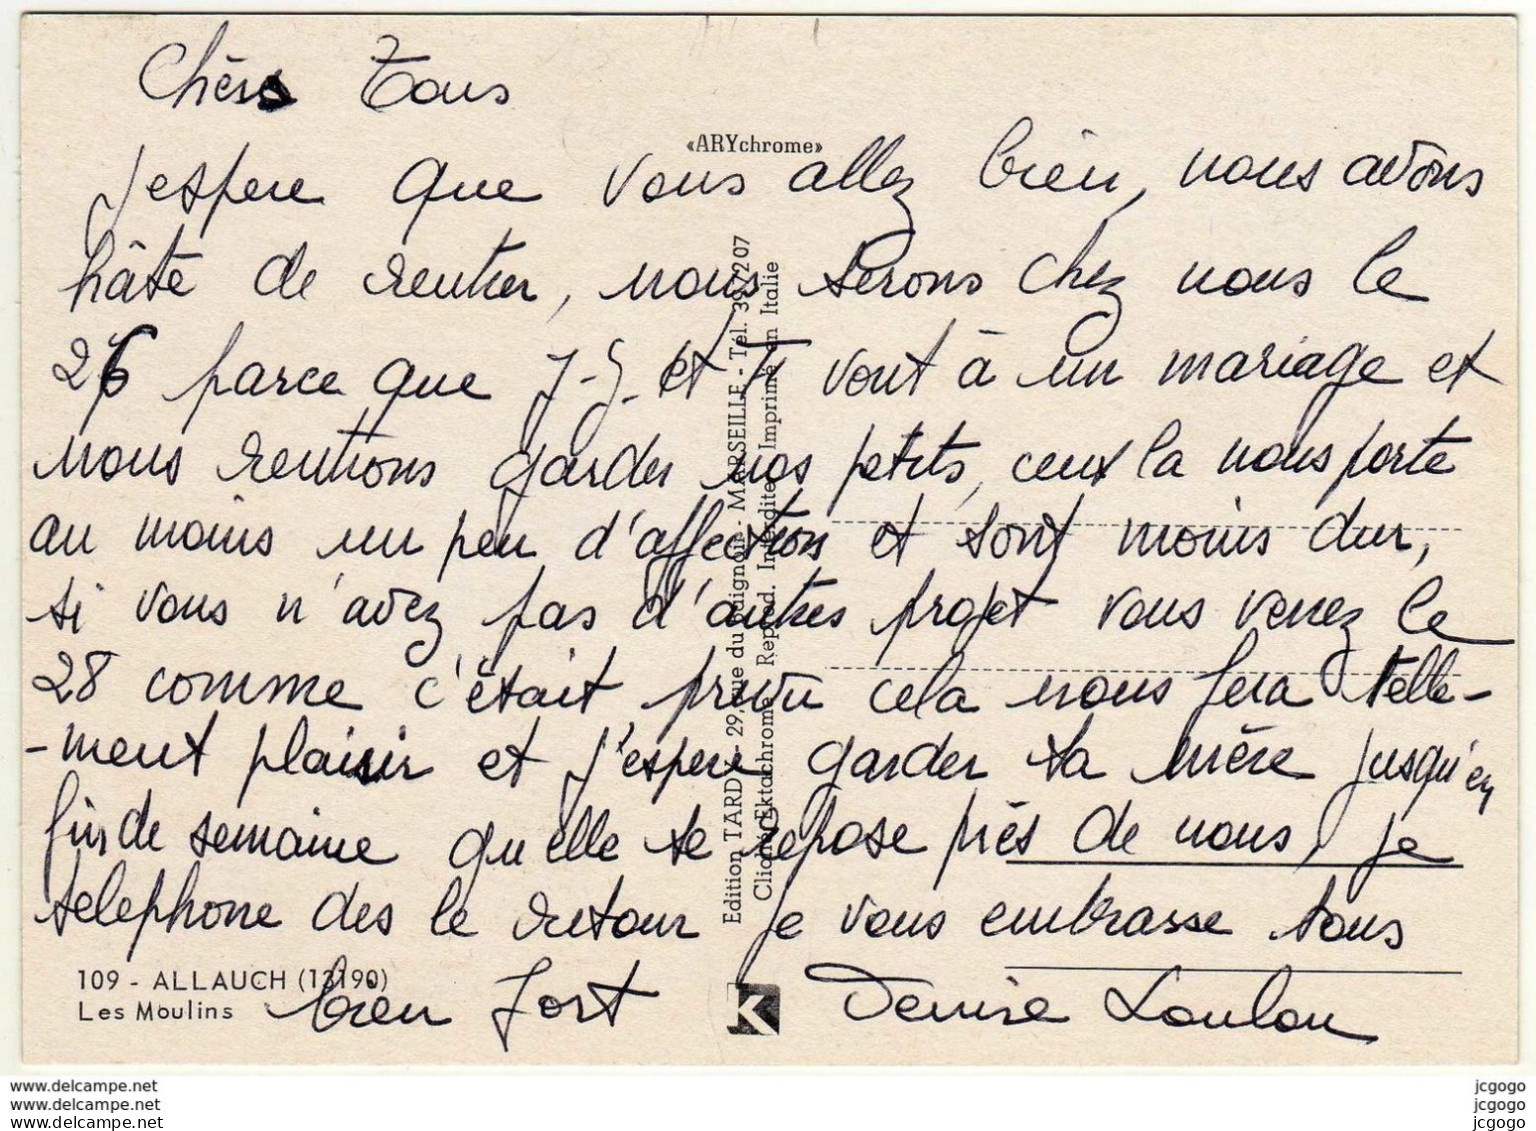 Chèrs Tous
«ARYchrome»
J'espere que vous allez bien, nous avons
hâte de rentrer, nous serons chez nous le
26 parce que J-J. et vont à un mariage et
nous rentrons garder nos petits, ceux la nous porte
au moins un peu d'affection et sont moins dur,
si vous n'avez pas d'autres projet vous venez le
28 comme c'était prevu cela nous fera telle-
-ment plaisir et j'espere garder ta mère jusqu'en
fin de semaine qu'elle se repose près de nous, je
telephone des le retour je vous embrasse tous
bien fort Denise Loulou
109 - ALLAUCH (13190)
Les Moulins
Edition TARDY - 29, rue du - MARSEILLE - Tél. 39/207
Cliché Ektachrome Reprod. Interdite Imprimé en Italie
K
www.delcampe.net
www.delcampe.net
www.delcampe.net
jcgogo
jcgogo
jcgogo